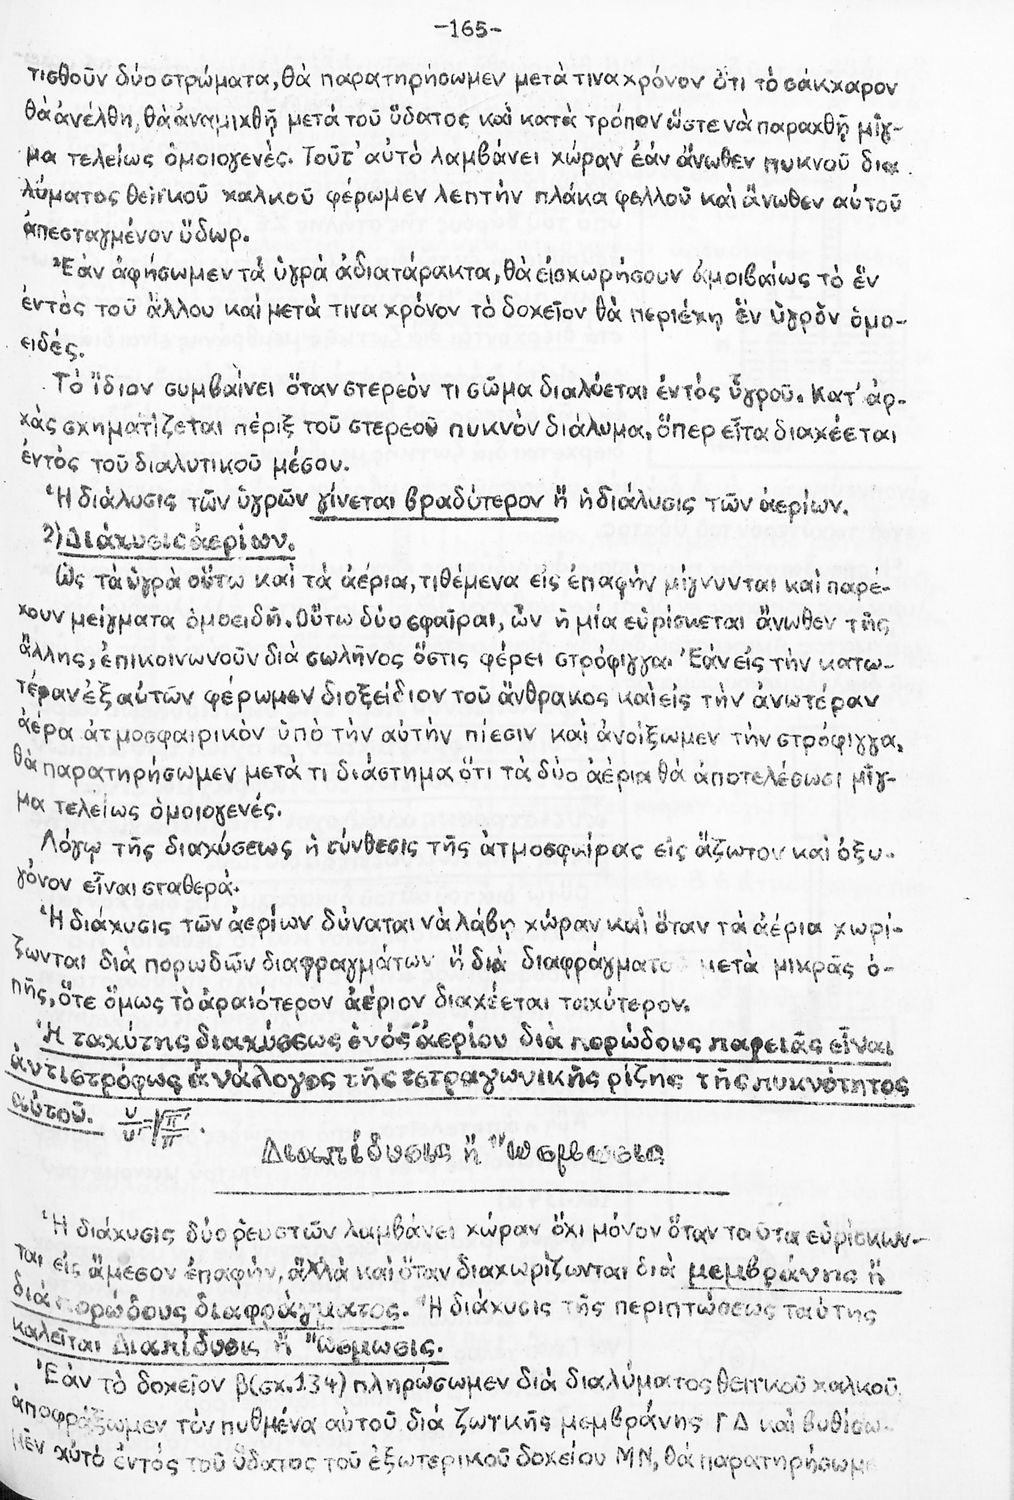 -165-
τισθοῦν δύο στρώματα, θὰ παρατηρήσωμεν μετὰ τινα χρόνον ὅτι τὸ σάκχαρον
θὰ ἀνέλθη, θὰ ἀναμιχθῇ μετὰ τοῦ ὕδατος καὶ κατὰ τρόπον ὥστε νὰ παραχθῇ μῖγ-
μα τελείως ὁμοιογενές. Τοῦτ' αὐτὸ λαμβάνει χώραν ἐὰν ἄνωθεν πυκνοῦ δια
λύματος θειϊκοῦ χαλκοῦ φέρωμεν λεπτὴν πλάκα φελλοῦ καὶ ἄνωθεν αὐτοῦ
ἀπεσταγμένον ὕδωρ.
Ἐὰν ἀφήσωμεν τὰ ὑγρὰ ἀδιατάρακτα, θὰ εἰσχωρήσουν ἀμοιβαίως τὸ ἓν
ἐντὸς τοῦ ἄλλου καὶ μετὰ τινα χρόνον τὸ δοχεῖον θὰ περιέχη ἓν ὑγρὸν ὁμο-
ειδές.
Τὸ ἴδιον συμβαίνει ὅταν στερεόν τι σῶμα διαλύεται ἐντὸς ὑγροῦ. Κατ' ἀρ-
χὰς σχηματίζεται πέριξ τοῦ στερεοῦ πυκνὸν διάλυμα, ὅπερ εἶτα διαχέεται
ἐντὸς τοῦ διαλυτικοῦ μέσου.
Ἡ διάλυσις τῶν ὑγρῶν γίνεται βραδύτερον ἢ ἡ διάλυσις τῶν ἀερίων.
2) Διάχυσις ἀερίων.
Ὡς τὰ ὑγρὰ οὕτω καὶ τὰ ἀέρια, τιθέμενα εἰς ἐπαφὴν μίγνυνται καὶ παρέ-
χουν μείγματα ὁμοειδῆ. Οὕτω δύο σφαῖραι, ὧν ἡ μία εὑρίσκεται ἄνωθεν τῆς
ἄλλης, ἐπικοινωνοῦν διὰ σωλῆνος ὅστις φέρει στρόφιγγα. Ἐὰν εἰς τὴν κατω-
τέραν ἐξ αὐτῶν φέρωμεν διοξείδιον τοῦ ἄνθρακος καὶ εἰς τὴν ἀνωτέραν
ἀέρα ἀτμοσφαιρικὸν ὑπὸ τὴν αὐτὴν πίεσιν καὶ ἀνοίξωμεν τὴν στρόφιγγα,
θὰ παρατηρήσωμεν μετὰ τι διάστημα ὅτι τὰ δύο ἀέρια θὰ ἀποτελέσωσι μῖγ-
μα τελείως ὁμοιογενές.
Λόγῳ τῆς διαχύσεως ἡ σύνθεσις τῆς ἀτμοσφαίρας εἰς ἄζωτον καὶ ὀξυ-
γόνον εἶναι σταθερά.
Ἡ διάχυσις τῶν ἀερίων δύναται νὰ λάβη χώραν καὶ ὅταν τὰ ἀέρια χωρί-
ζωνται διὰ πορωδῶν διαφραγμάτων ἢ διὰ διαφράγματος μετὰ μικρᾶς ὀ-
πῆς, ὅτε ὅμως τὸ ἀραιότερον ἀέριον διαχέεται ταχύτερον.
Ἡ ταχύτης διαχύσεως ἑνὸς ἀερίου διὰ πορώδους παρειᾶς εἶναι
ἀντιστρόφως ἀνάλογος τῆς τετραγωνικῆς ρίζης τῆς πυκνότητος
αὐτοῦ. υ/υ'=√π'/π.
Διαπίδυσις ἢ Ὤσμωσις
Ἡ διάχυσις δύο ρευστῶν λαμβάνει χώραν ὄχι μόνον ὅταν ταῦτα εὑρίσκων-
ται εἰς ἄμεσον ἐπαφήν, ἀλλὰ καὶ ὅταν διαχωρίζωνται διὰ μεμβράνης ἢ
διὰ πορώδους διαφράγματος. Ἡ διάχυσις τῆς περιπτώσεως ταύτης
καλεῖται Διαπίδυσις ἢ Ὤσμωσις.
Ἐὰν τὸ δοχεῖον β(σχ.134) πληρώσωμεν διὰ διαλύματος θειϊκοῦ χαλκοῦ,
ἀποφράξωμεν τὸν πυθμένα αὐτοῦ διὰ ζωτικῆς μεμβράνης ΓΔ καὶ βυθίσω-
μεν αὐτὸ ἐντὸς τοῦ ὕδατος τοῦ ἐξωτερικοῦ δοχείου ΜΝ, θὰ παρατηρήσωμεν